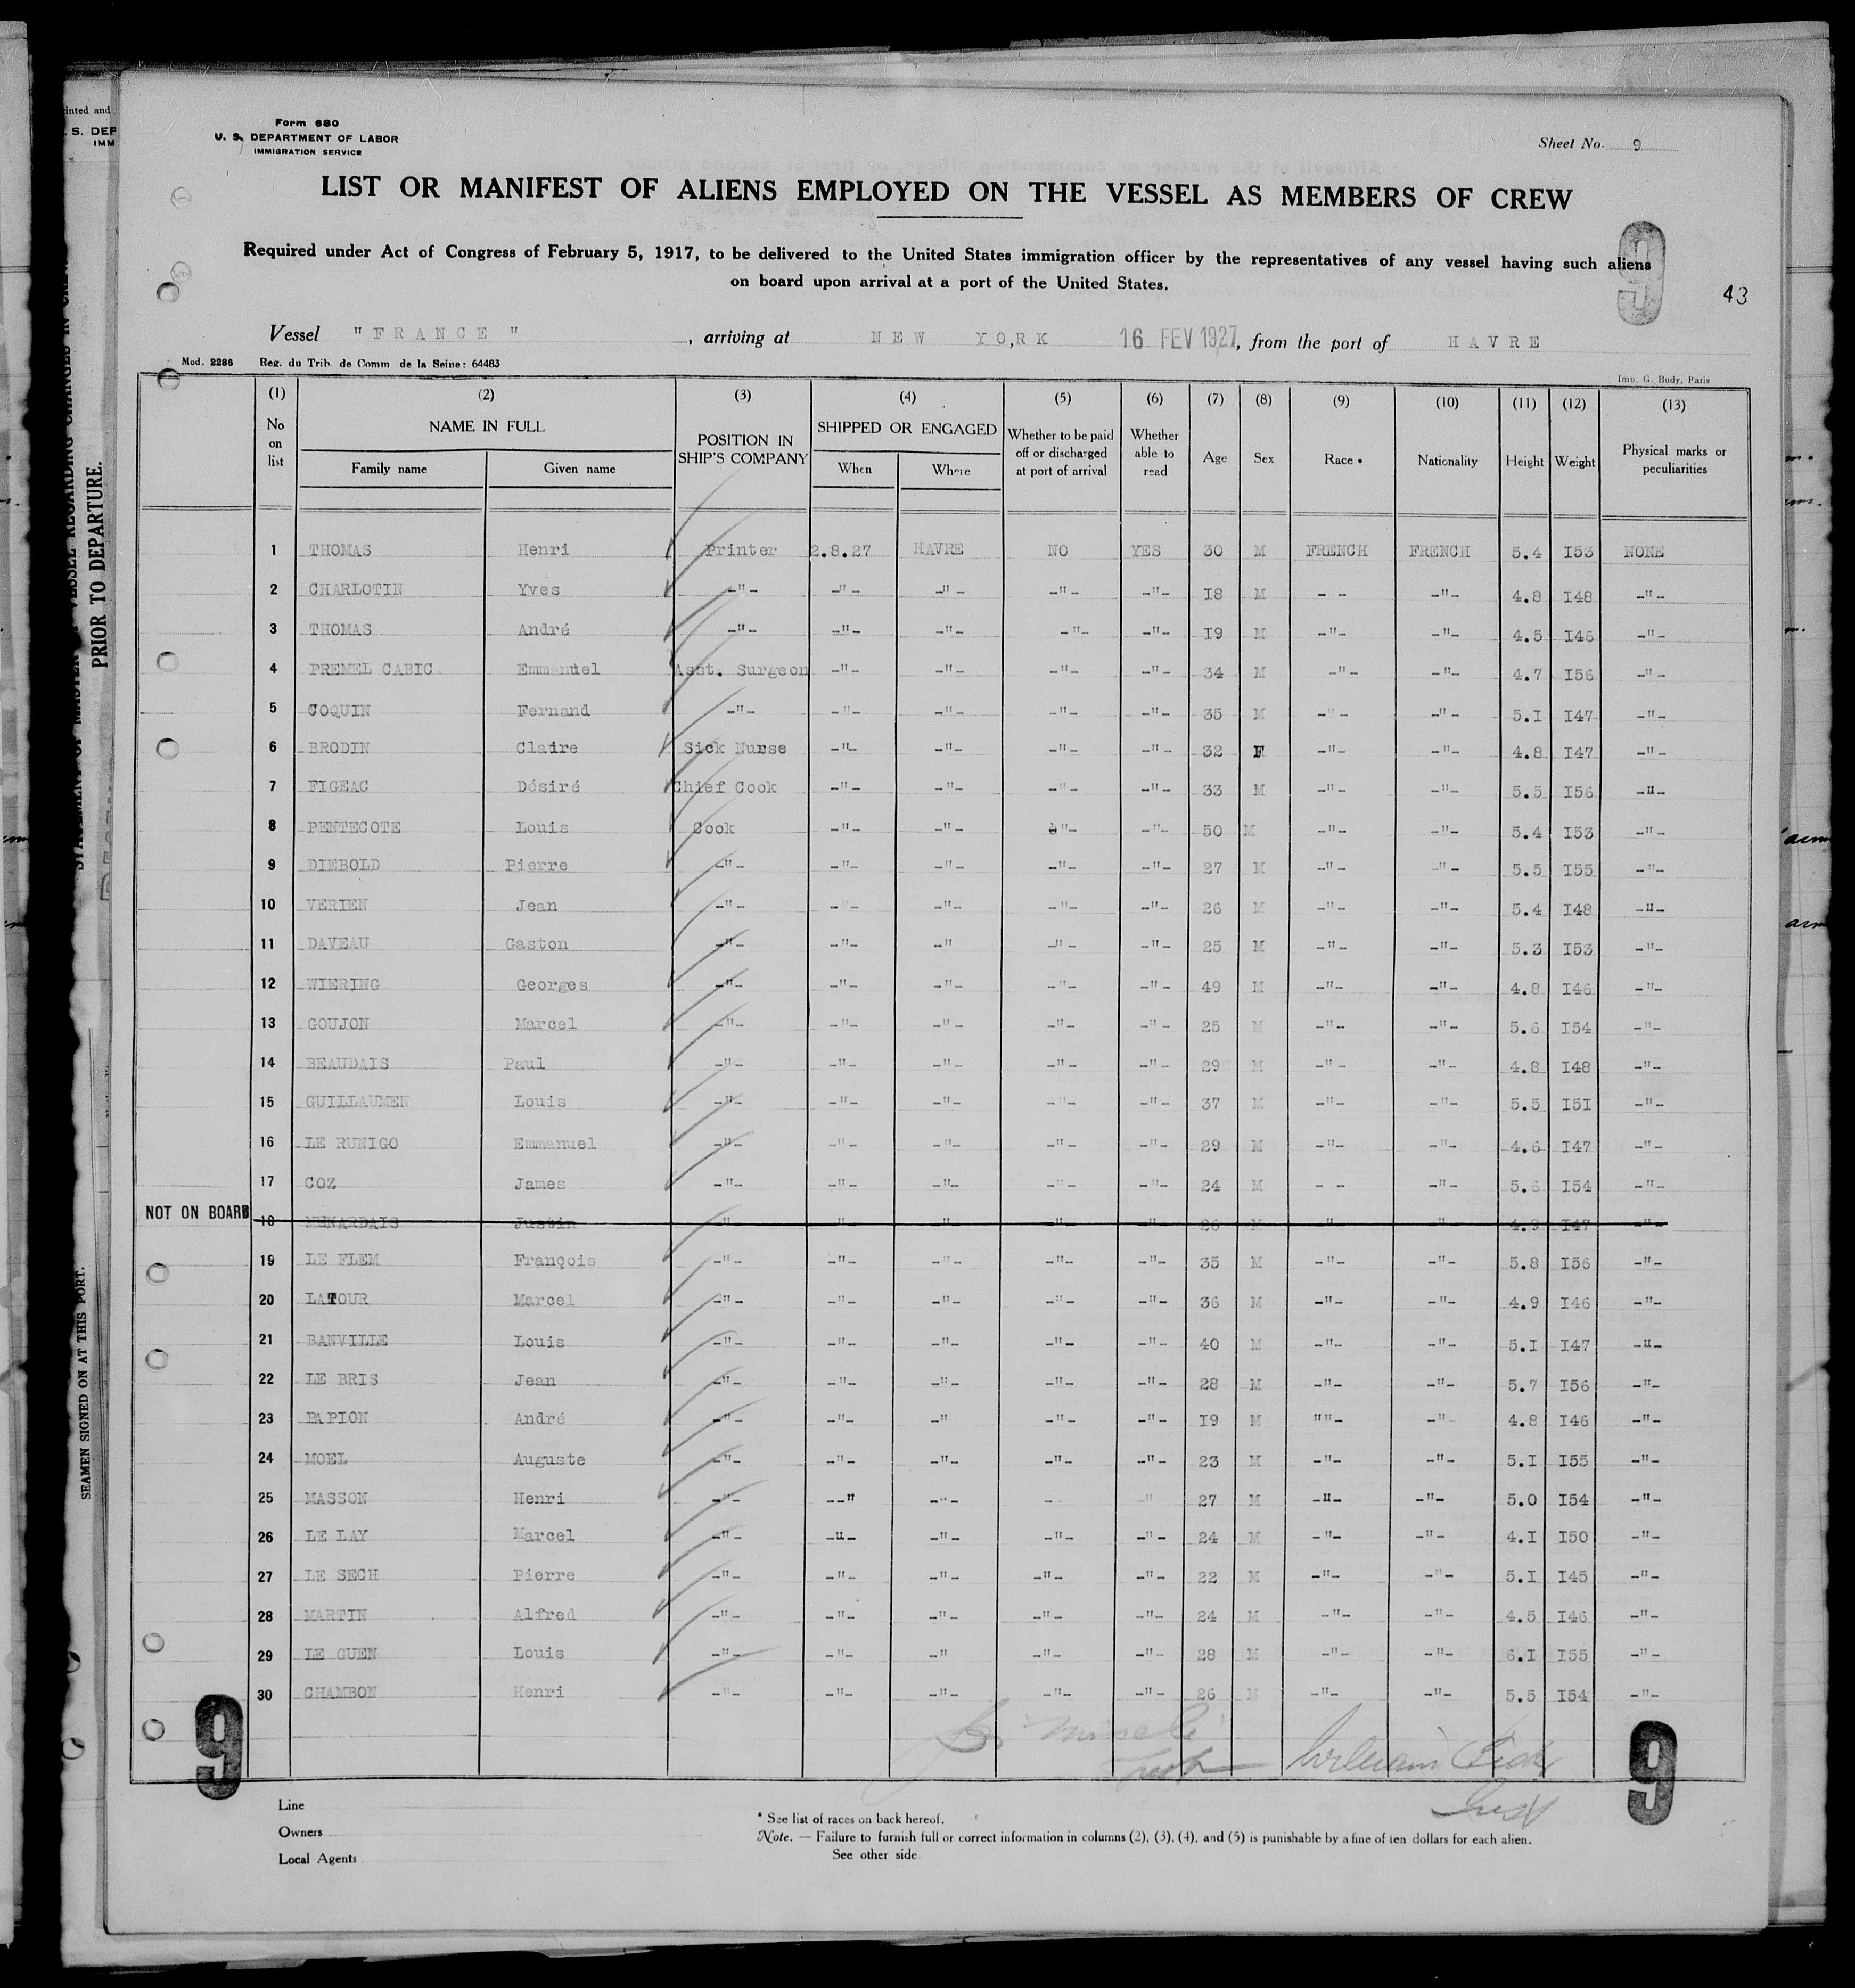 Form 680
U. S. DEPARTMENT OF LABOR
IMMIGRATION SERVICE
Sheet No. 9
LIST OR MANIFEST OF ALIENS EMPLOYED ON THE VESSEL AS MEMBERS OF CREW
Required under Act of Congress of February 5, 1917, to be delivered to the United States immigration officer by the representatives of any vessel having such aliens
on board upon arrival at a port of the United States.
9
43
Vessel "FRANCE", arriving at NEW YO,RK 16 FEV 1927, from the port of HAVRE
Mod. 2286 Reg. du Trib. de Comm de la Seine: 64483 Imp. G. Body, Paris
(1) (2) (3) (4) (5) (6) (7) (8) (9) (10) (11) (12) (13)
No on list NAME IN FULL Family name Given name POSITION IN SHIP'S COMPANY SHIPPED OR ENGAGED When Where Whether to be paid off or discharged at port of arrival Whether able to read Age Sex Race • Nationality Height Weight Physical marks or peculiarities
1 THOMAS Henri Printer 2.8.27 HAVRE NO YES 30 M FRENCH FRENCH 5.4 I53 NONE
2 CHARLOTIN Yves -"- -"- -"- -"- -"- I8 M - - -"- 4.8 I48 -"-
3 THOMAS André -"- -"- -"- -"- -"- I9 M -"- -"- 4.5 I46 -"-
4 PREMEL CABIC Emmanuel Asst. Surgeon -"- -"- -"- -"- 34 M -"- -"- 4.7 I56 -"-
5 COQUIN Fernand -"- -"- -"- -"- -"- 35 M -"- -"- 5.I I47 -"-
6 BRODIN Claire Sick Nurse -"- -"- -"- -"- 32 F -"- -"- 4.8 I47 -"-
7 FIGEAC Désiré Chief Cook -"- -"- -"- -"- 33 M -"- -"- 5.5 I56 -"-
8 PENTECOTE Louis Cook -"- -"- -"- -"- 50 M -"- -"- 5.4 I53 -"-
9 DIEBOLD Pierre -"- -"- -"- -"- -"- 27 M -"- -"- 5.5 I55 -"-
10 VERIEN Jean -"- -"- -"- -"- -"- 26 M -"- -"- 5.4 I48 -"-
11 DAVEAU Gaston -"- -"- -" -"- -"- 25 M -"- -"- 5.3 I53 -"-
12 WIERING Georges -"- -"- -"- -"- -"- 49 M -"- -"- 4.8 I46 -"-
13 GOUJON Marcel -"- -"- -"- -"- -"- 25 M -"- -"- 5.6 I54 -"-
14 BEAUDAIS Paul -"- -"- -"- -"- -"- 29 M -"- -"- 4.8 I48 -"-
15 GUILLAUMEN Louis -"- -"- -"- -"- -"- 37 M -"- -"- 5.5 I5I -"-
16 LE RUNIGO Emmanuel -"- -"- -"- -"- -"- 29 M -"- -"- 4.6 I47 -"-
17 COZ James -"- -"- -"- -"- -"- 24 M - - -"- 5.6 I54 -"-
NOT ON BOARD 18 MENARDAIS Justin -"- -"- -"- -"- -"- 26 M -"- -"- 4.9 I47 -"-
19 LE FLEM François -"- -"- -"- -"- -"- 35 M -"- -"- 5.8 I56 -"-
20 LATOUR Marcel -"- -"- -"- -"- -"- 36 M -"- -"- 4.9 I46 -"-
21 BANVILLE Louis -"- -"- -"- -"- -"- 40 M -"- -"- 5.I I47 -"-
22 LE BRIS Jean -"- -"- -"- -"- -"- 28 M -"- -"- 5.7 I56 -"-
23 PAPION André -"- -"- -" -"- -"- I9 M ""- -"- 4.8 I46 -"-
24 MOEL Auguste -"- -"- -"- -"- -"- 23 M -"- -"- 5.I I55 -"-
25 MASSON Henri -"- --" -"- - " 27 M -"- -"- 5.0 I54 -"-
26 LE LAY Marcel -"- -"- -"- -"- -"- 24 M -"- -"- 4.I I50 -"-
27 LE SECH Pierre -"- -"- -"- -"- -"- 22 M -"- -"- 5.I I45 -"-
28 MARTIN Alfred -"- -"- -"- -"- -"- 24 M -"- -"- 4.5 I46 -"-
29 LE GUEN Louis -"- -"- -" -"- -"- 28 M -"- -"- 6.I I55 -"-
30 CHAMBON Henri -"- -"- -"- -"- -"- 26 M -"- -"- 5.5 I54 -"-
9
9
Line
Owners
Local Agents
* See list of races on back hereof.
Note. — Failure to furnish full or correct information in columns (2), (3), (4), and (5) is punishable by a fine of ten dollars for each alien.
See other side
PRIOR TO DEPARTURE.
SEAMEN SIGNED ON AT THIS PORT.